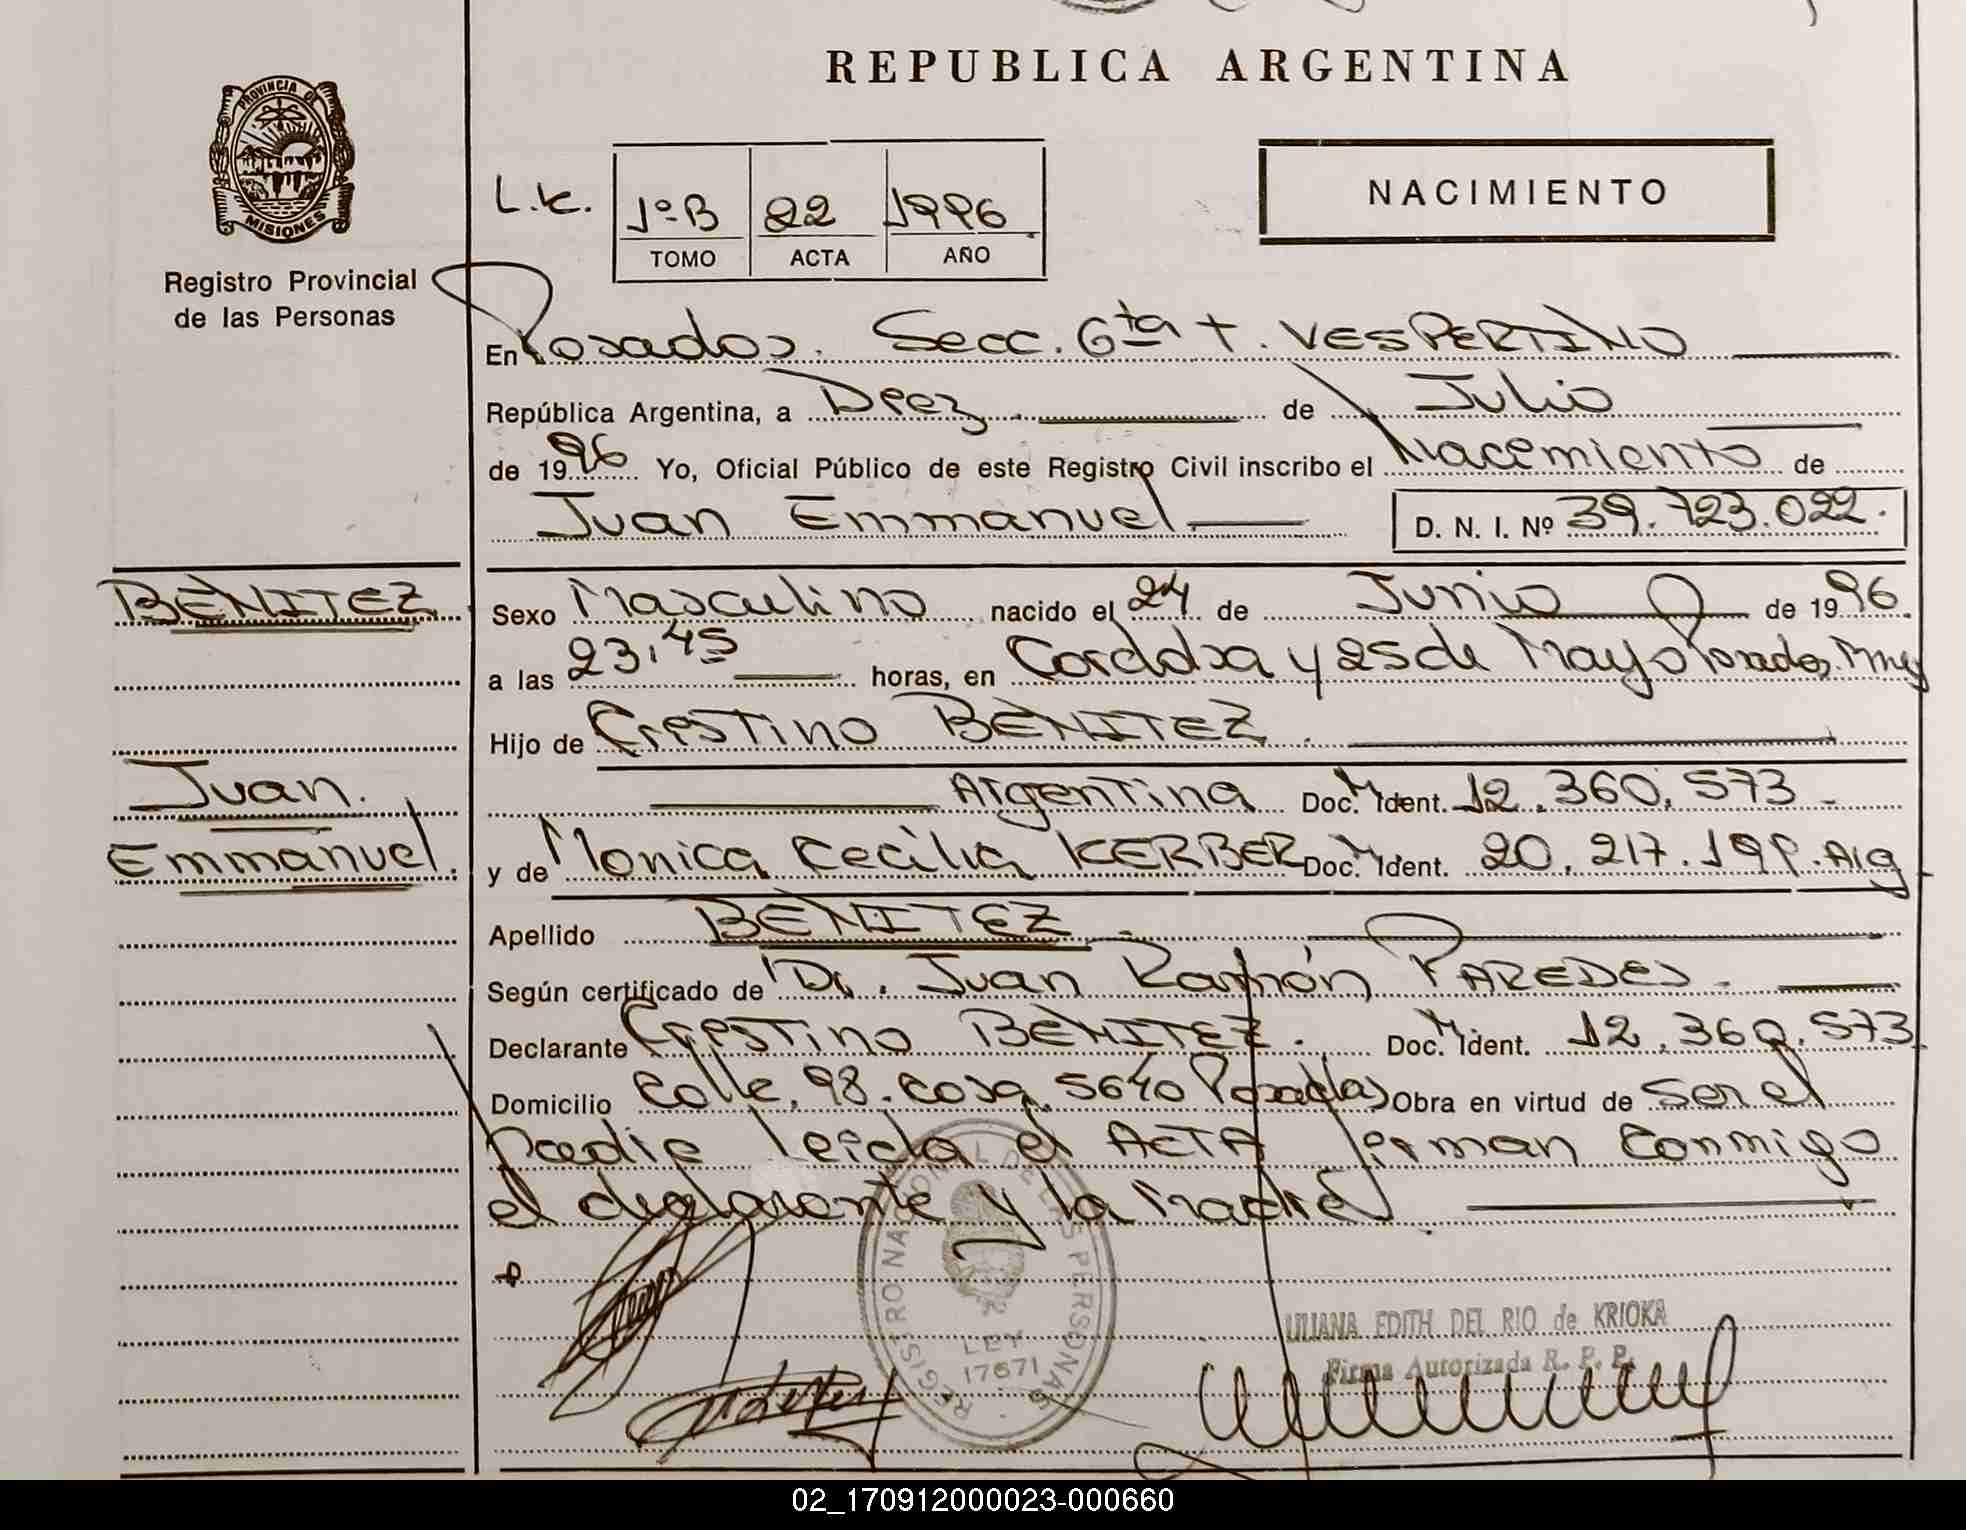 REPUBLICA ARGENTINA
PROVINCIA DE
MISIONES
Registro Provincial
de las Personas
L.c. 1º-B 22 1996
TOMO ACTA AÑO
NACIMIENTO
En Posadas. Secc. 6ta T. VESPERTINO
República Argentina, a Diez de Julio
de 1996 Yo, Oficial Público de este Registro Civil inscribo el Nacimiento de
Juan Emmanuel D. N. I. Nº 39.723.022.
BENITEZ
Juan.
Emmanuel.
Sexo Masculino nacido el 24 de Junio de 1996.
a las 23,45 horas, en Cordoba y 25 de Mayo Posadas, Mnes
Hijo de Cristino BENITEZ.
Argentina Doc. M Ident. 12.360.573.
y de Monica Cecilia KERBER Doc. M Ident. 20.217.199. Arg
Apellido BENITEZ.
Según certificado de Dr. Juan Ramón PAREDES.
Declarante Cristino BENITEZ. Doc. M Ident. 12.360.573
Domicilio Calle. 98. casa. 5640 Posadas Obra en virtud de ser el
padre leida el ACTA firman conmigo
el declarante y la madre.
REGISTRO NACIONAL DE LAS PERSONAS
LEY
17671
LILIANA EDITH DEL RIO de KRIOKA
Firma Autorizada R. P. P.
02_170912000023-000660